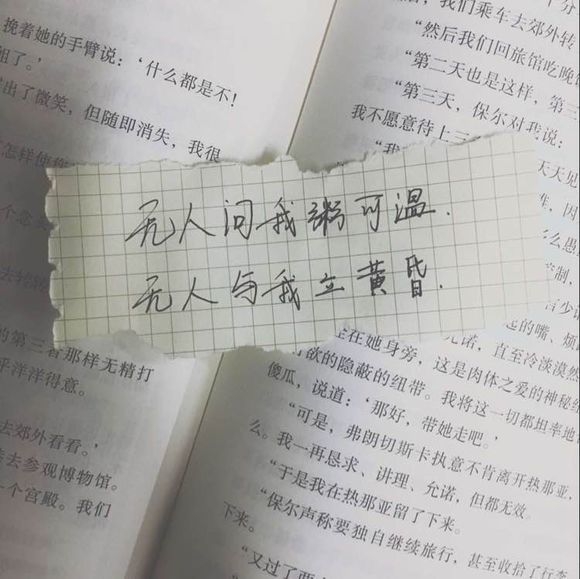 挽着她的手臂说:‘什么都是不!
了。’
出了微笑,但随即消失,我很
无人问我粥可温.
无人与我立黄昏.
的第三者那样无精打
平洋洋得意。
去郊外看看。’
去参观博物馆。
个宫殿。我们
后,我们乘车去郊外转
“然后我们回旅馆吃晚
“第二天也是这样,第三
“第三天,保尔对我说:
我不愿意待上三
天天见
的嘴、烦
允诺,直至冷淡漠然
坐在她身旁,这是肉体之爱的神秘
欲的隐蔽的纽带。我将这一切都坦率地
傻瓜,说道:‘那好,带她走吧。’
“可是,弗朗切斯卡执意不肯离开热那亚,
么。我一再恳求、讲理、允诺,但都无效。
“于是我在热那亚留了下来。
“保尔声称要独自继续旅行,甚至收拾了行李
下来。
“又过了两